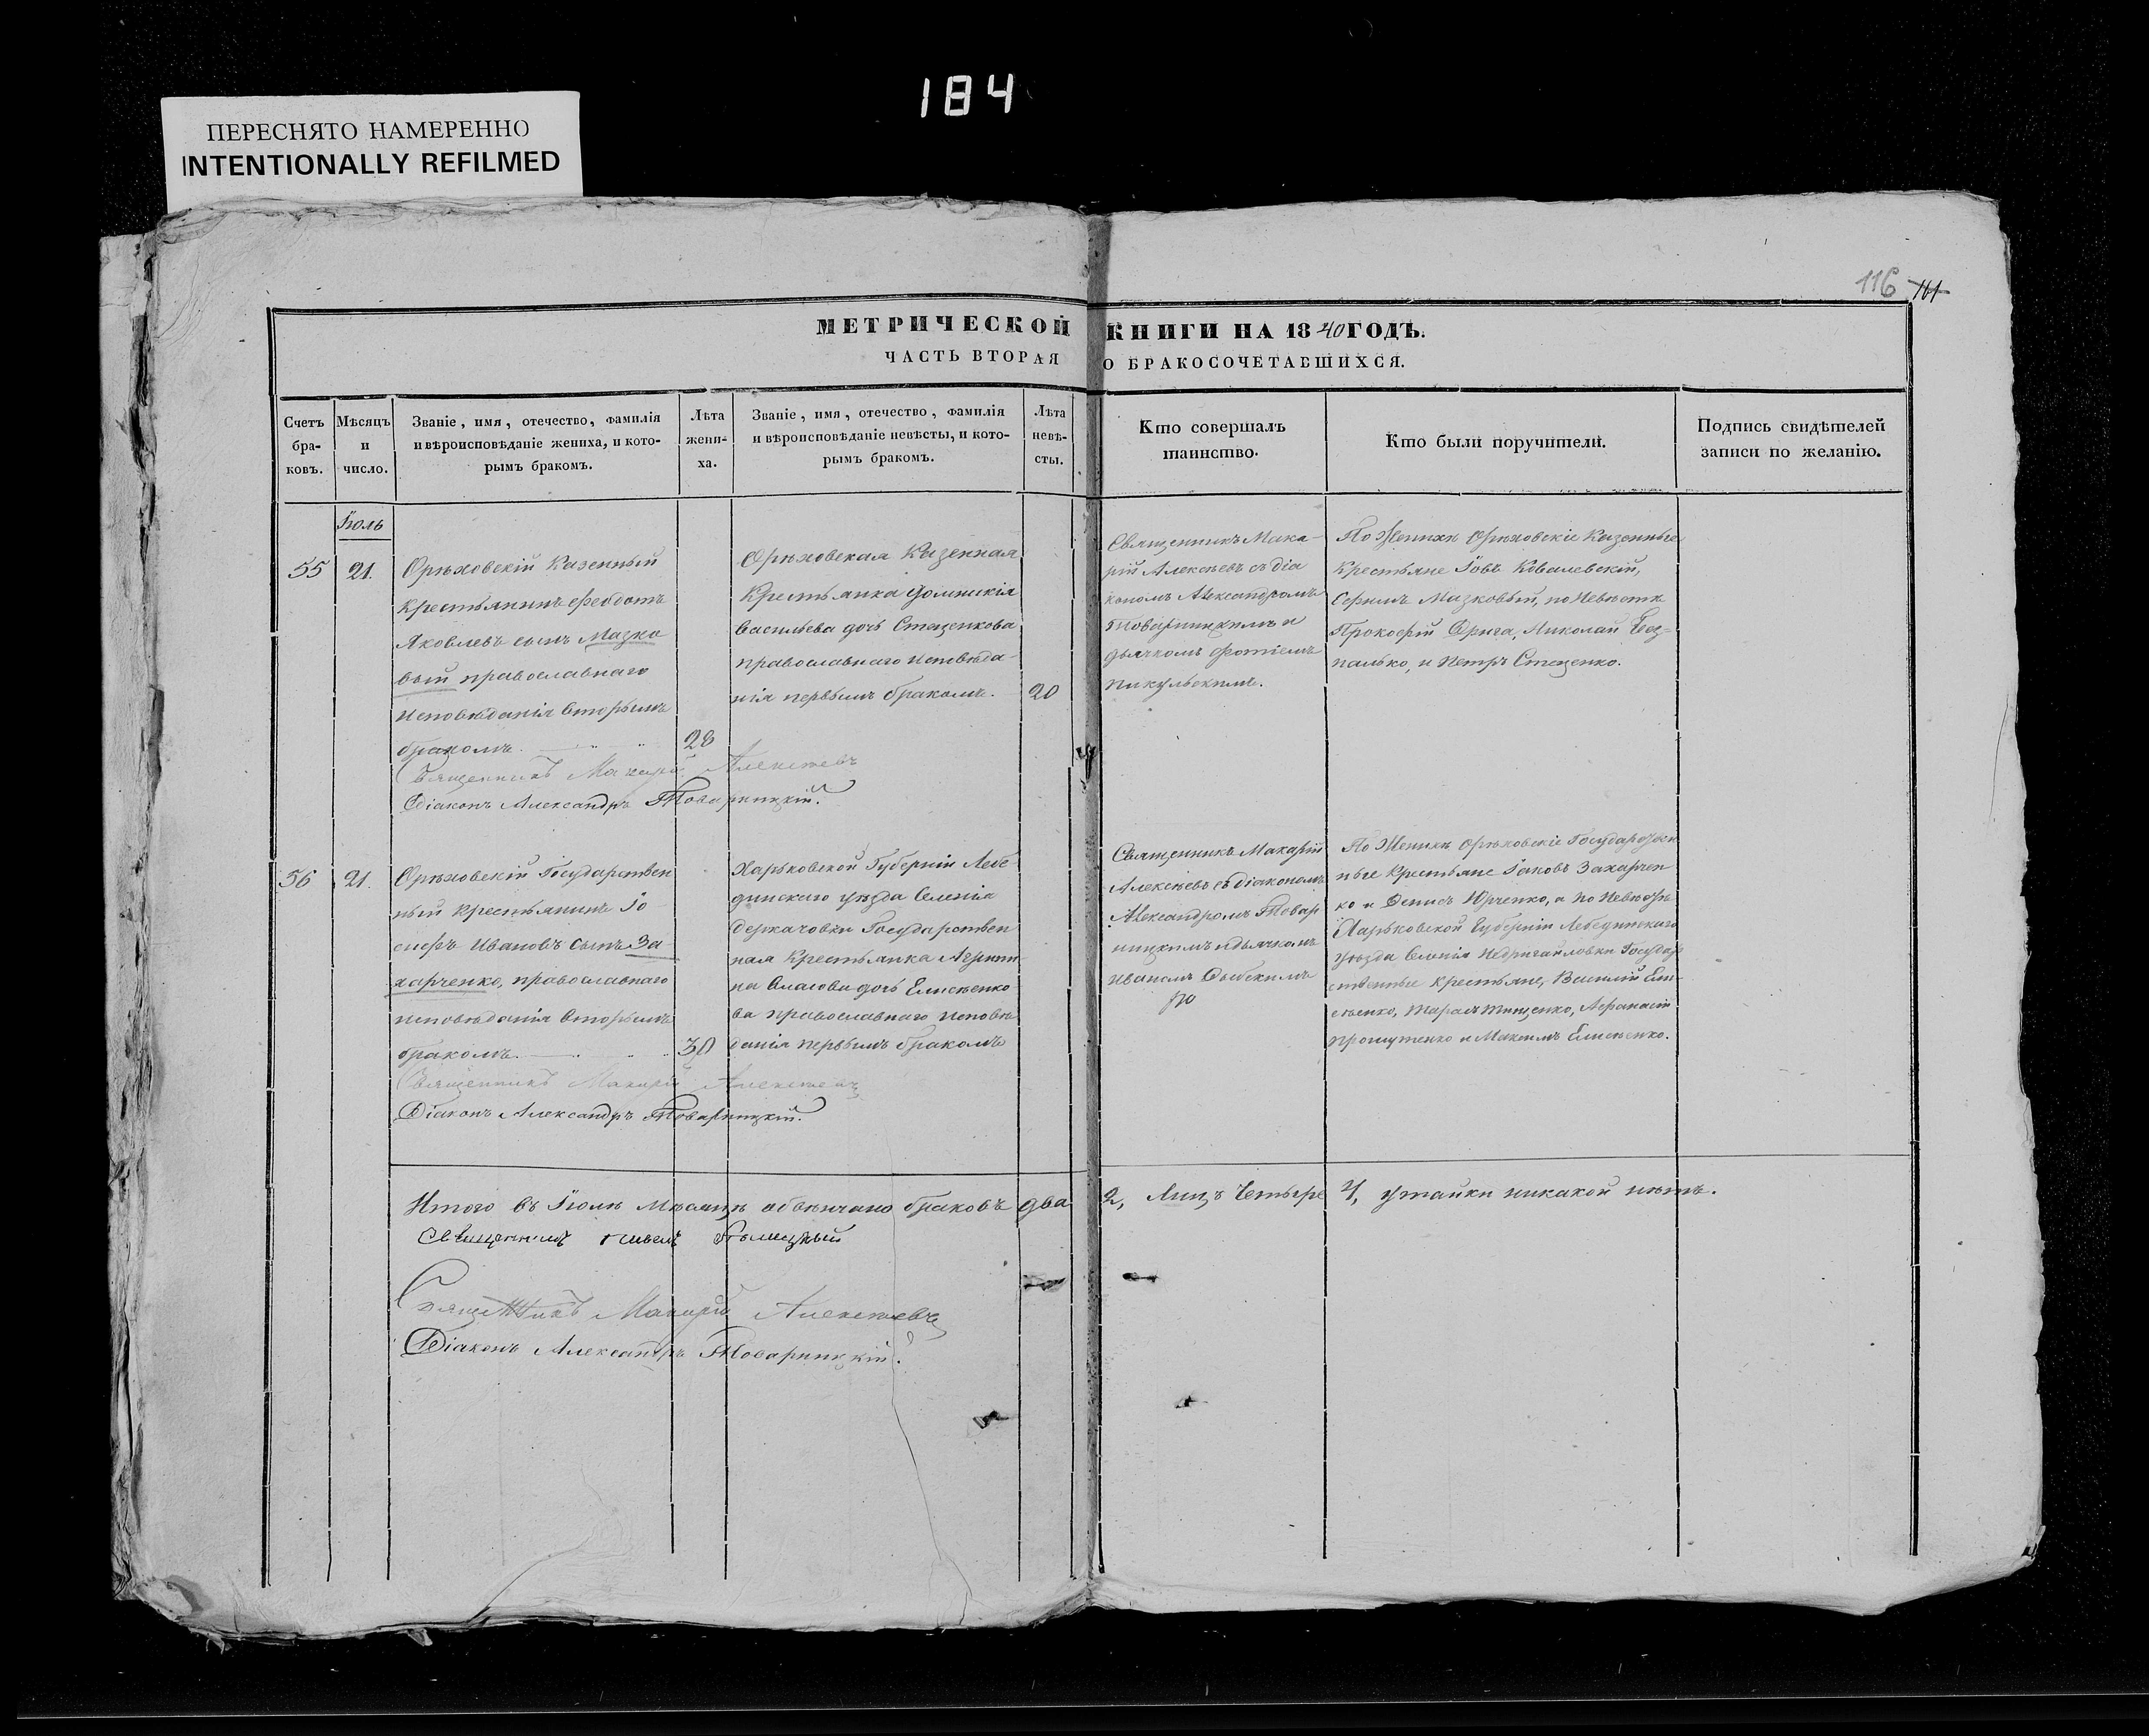 184
ПЕРЕСНЯТО НАМЕРЕННО
INTENTIONALLY REFILMED
116
МЕТРИЧЕСКОЙ КНИГИ НА 1840 ГОДЪ.
ЧАСТЬ ВТОРАЯ О БРАКОСОЧЕТАВШИХСЯ.
Счетъ
бра-
ковъ.
Мѣсяцъ
и
число.
Званіе, имя, отечество, фамилія
и вѣроисповѣданіе жениха, и кото-
рымъ бракомъ.
Лѣта
жени-
ха.
Званіе, имя, отечество, фамилія
и вѣроисповѣданіе невѣсты, и кото-
рымъ бракомъ.
Лѣта
невѣ-
сты.
Кто совершалъ
таинство.
Кто были поручители.
Подпись свидѣтелей
записи по желанію.
Іюль
55
21.
Орѣховскій Казенный
Крестьянинъ Феодотъ
Яковлевъ сынъ Мазко
вый православнаго
исповѣданія вторымъ
бракомъ.
28
Орѣховская Казенная
Крестьянка Домникія
Васильева дочь Стаценкова
православнаго исповѣда-
нія первымъ бракомъ.
20
Священникъ Мака-
рій Алексѣевъ съ діа
кономъ Александромъ
Товарницкимъ и
дьячкомъ Фотіемъ
Пикульскимъ.
По Женихѣ Орѣховскіе Казенные
Крестьяне Іовъ Ковалевскій,
Мазковый, по Невѣстѣ
Прокофій Николай Без-
палько, и Петръ Стаценко.
Священникъ Макарій Алексѣевъ
Діаконъ Александръ Товарницкій.
56
21.
Орѣховскій Государствен
ный крестьянинъ Іо
сифъ Ивановъ сынъ За-
харченко, православнаго
исповѣданія вторымъ
бракомъ.
30
Харьковской Губерніи Лебе
динскаго уѣзда Селенія
Деркачовки Государствен
ная Крестьянка Агрипи-
на Власова дочь Елисѣенко
ва православнаго исповѣ
данія первымъ бракомъ
Священникъ Макарій
Алексѣевъ съ діакономъ
Александромъ Товар
ницкимъ и дьячкомъ
Иваномъ
По Женихѣ Орѣховскіе Государствен
ные Крестьяне Іаковъ Захарчен
ко и Денисъ Юрченко, а по Невѣстѣ
Харьковской Губерніи Лебединскаго
уѣзда Селенія Недригайловки Государ
ственные крестьяне, Василій Ели-
сѣенко, Тарасъ Тищенко, Афанасій
и Максимъ Елисѣенко.
Священникъ Макарій Алексѣевъ
Діаконъ Александръ Товарницкій.
Итого въ Іюлѣ мѣсяцѣ обвѣнчано браковъ два 2, лицъ четыре 4, утайки никакой нѣтъ.
Священникъ
Священникъ Макарій Алексѣевъ
Діаконъ Александръ Товарницкій.